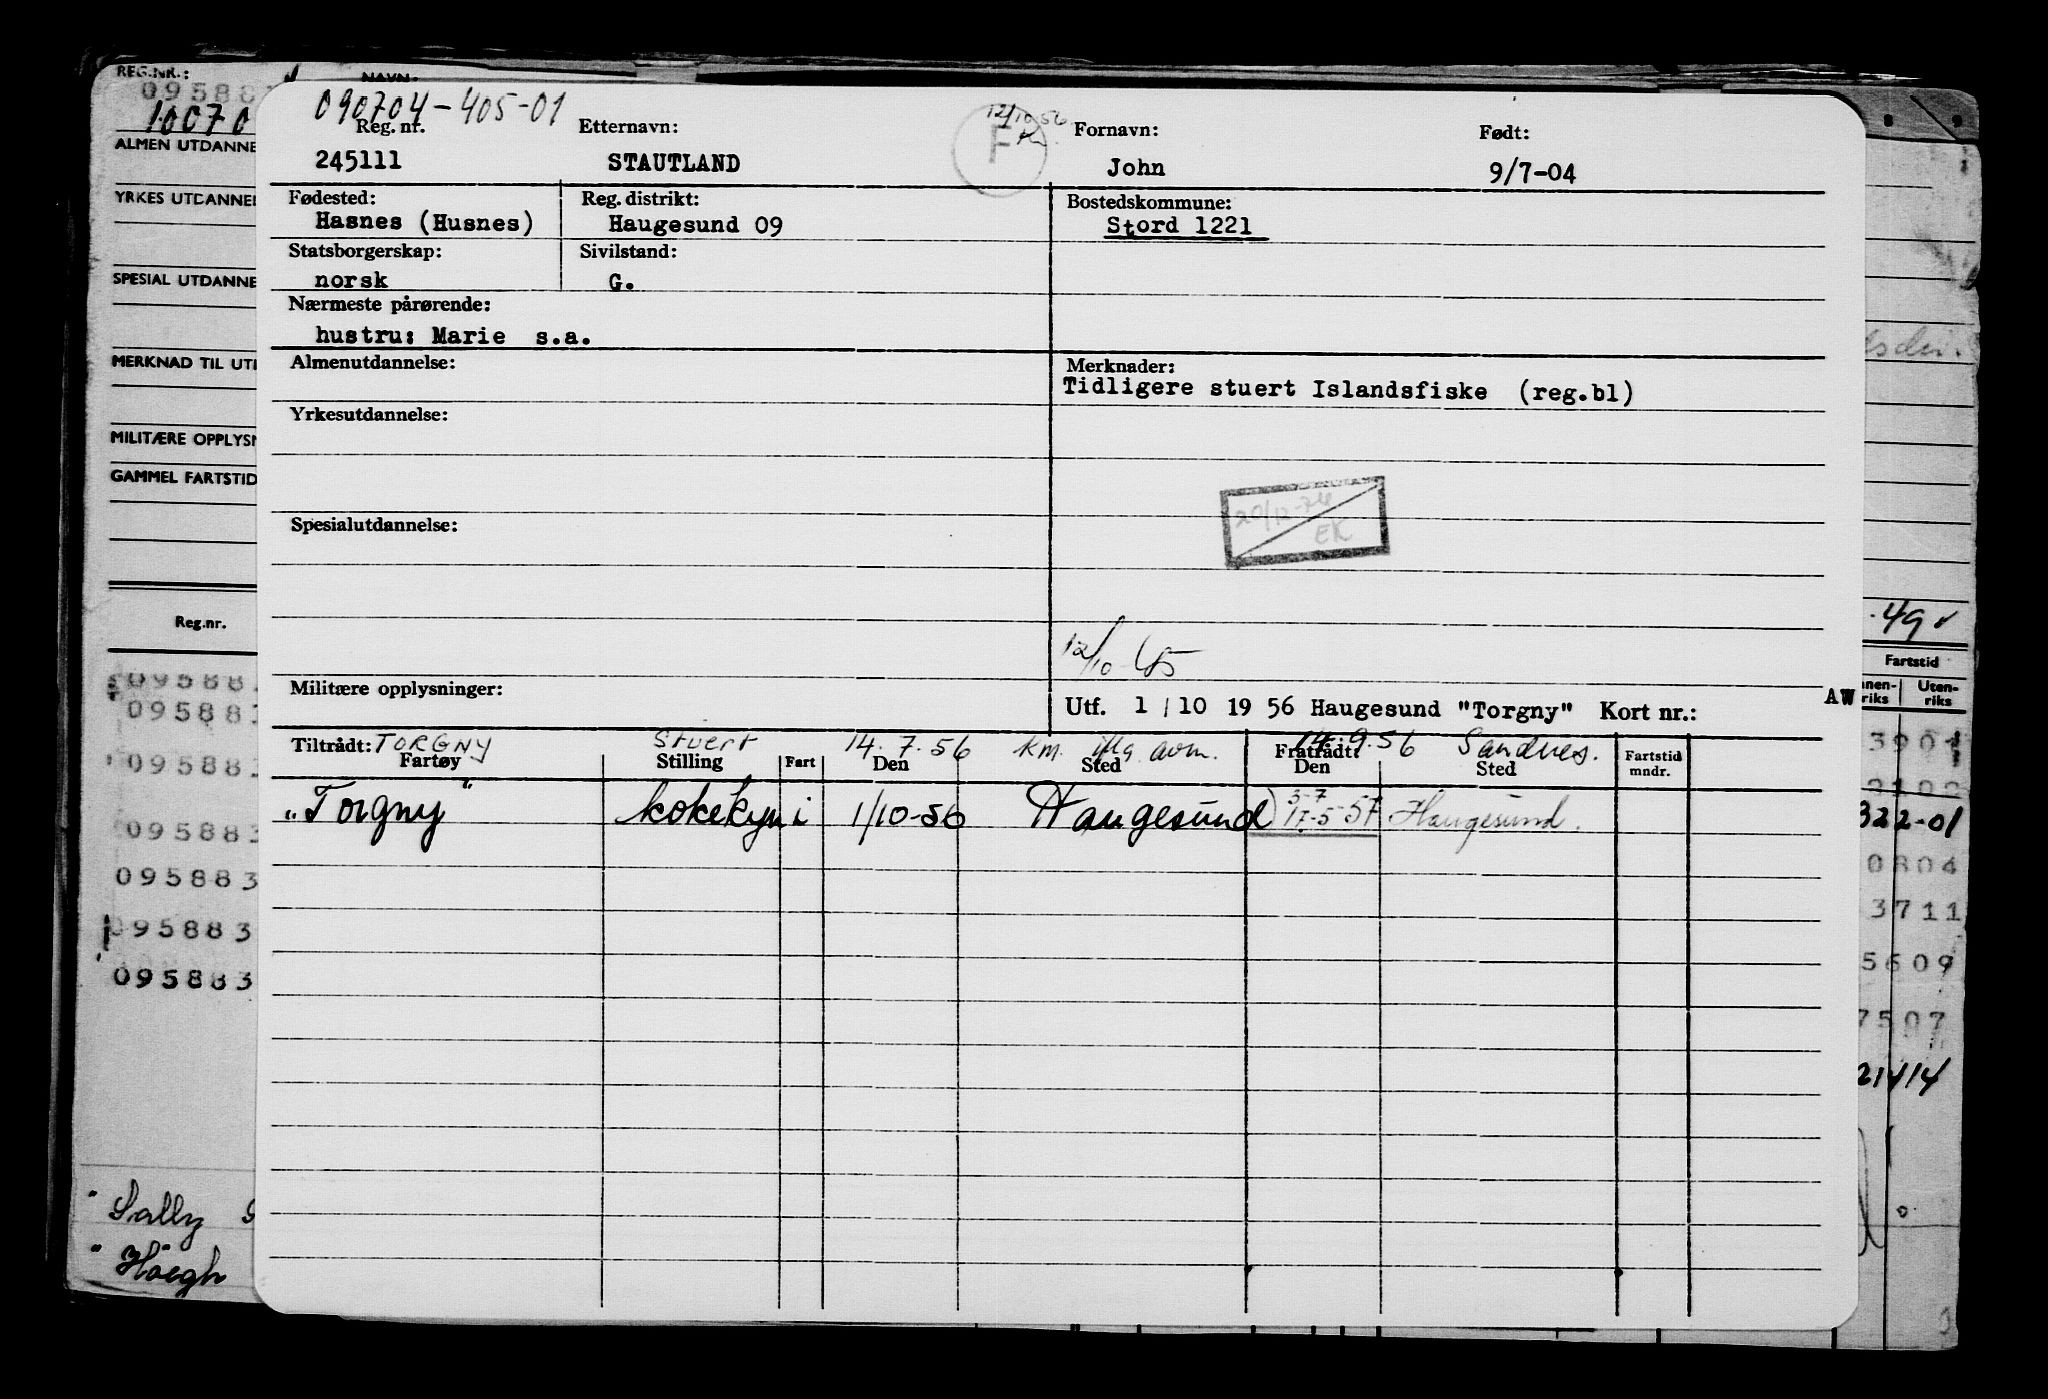 REG.NR.:
NAVN:
10070
ALMEN UTDANNE
YRKES UTDANNEL
SPESIAL UTDANNE
MERKNAD TIL UT
MILITÆRE OPPLYSN
GAMMEL FARTSTID
Reg.nr.
095883
095883
095883
095883
095883
"Sally
"Höegh
090704-405-01
Reg. nr. Etternavn: Fornavn: Født:
245111 STAUTLAND F John 9/7-04
Fødested: Reg. distrikt: Bostedskommune:
Hasnes (Husnes) Haugesund 09 Stord 1221
Statsborgerskap: Sivilstand:
norsk G.
Nærmeste pårørende:
hustru: Marie s.a.
Almenutdannelse: Merknader:
Tidligere stuert Islandsfiske (reg.bl)
Yrkesutdannelse:
20/12-74
EK
Spesialutdannelse:
12/10
Militære opplysninger:
Utf. 1 / 10 19 56 Haugesund "Torgny" Kort nr.: AW
Tiltrådt: TORGNY Stuert 14.7.56 km. avm. Fratrådt: 14.9.56 Sandnes.
Fartøy Stilling Fart Den Sted Den Sted Fartstid mndr.
"Torgny" kokekyn i 1/10-56 Haugesund 3-7 17-5-57 Haugesund.
49
Fartstid
Uten-
riks riks
322-01
0804
3711
5609
7507
21414